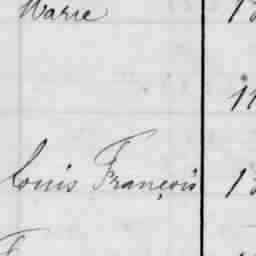 Marie
11
Louis François